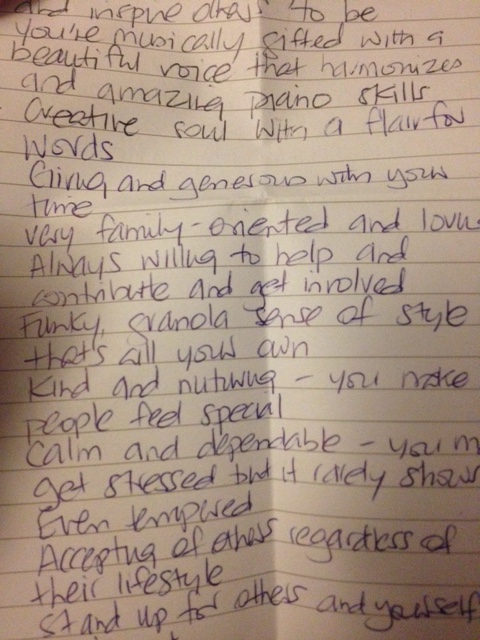 and inspire others to be
you're musically gifted with a
beautiful voice that harmonizes
and amazing piano skills
Creative soul with a flair for
words
Giving and generous with your
time
very family-oriented and loving
Always willing to help and
contribute and get involved
Funky, granola sense of style
that's all your own
Kind and nurturing - you make
people feel special
Calm and dependable - you m
get stressed but it rarely shows
Even tempered
Accepting of others regardless of
their lifestyle
Stand up for others and yourself